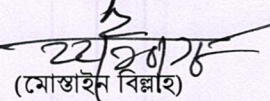 (মোস্তাইন বিল্লাহ)